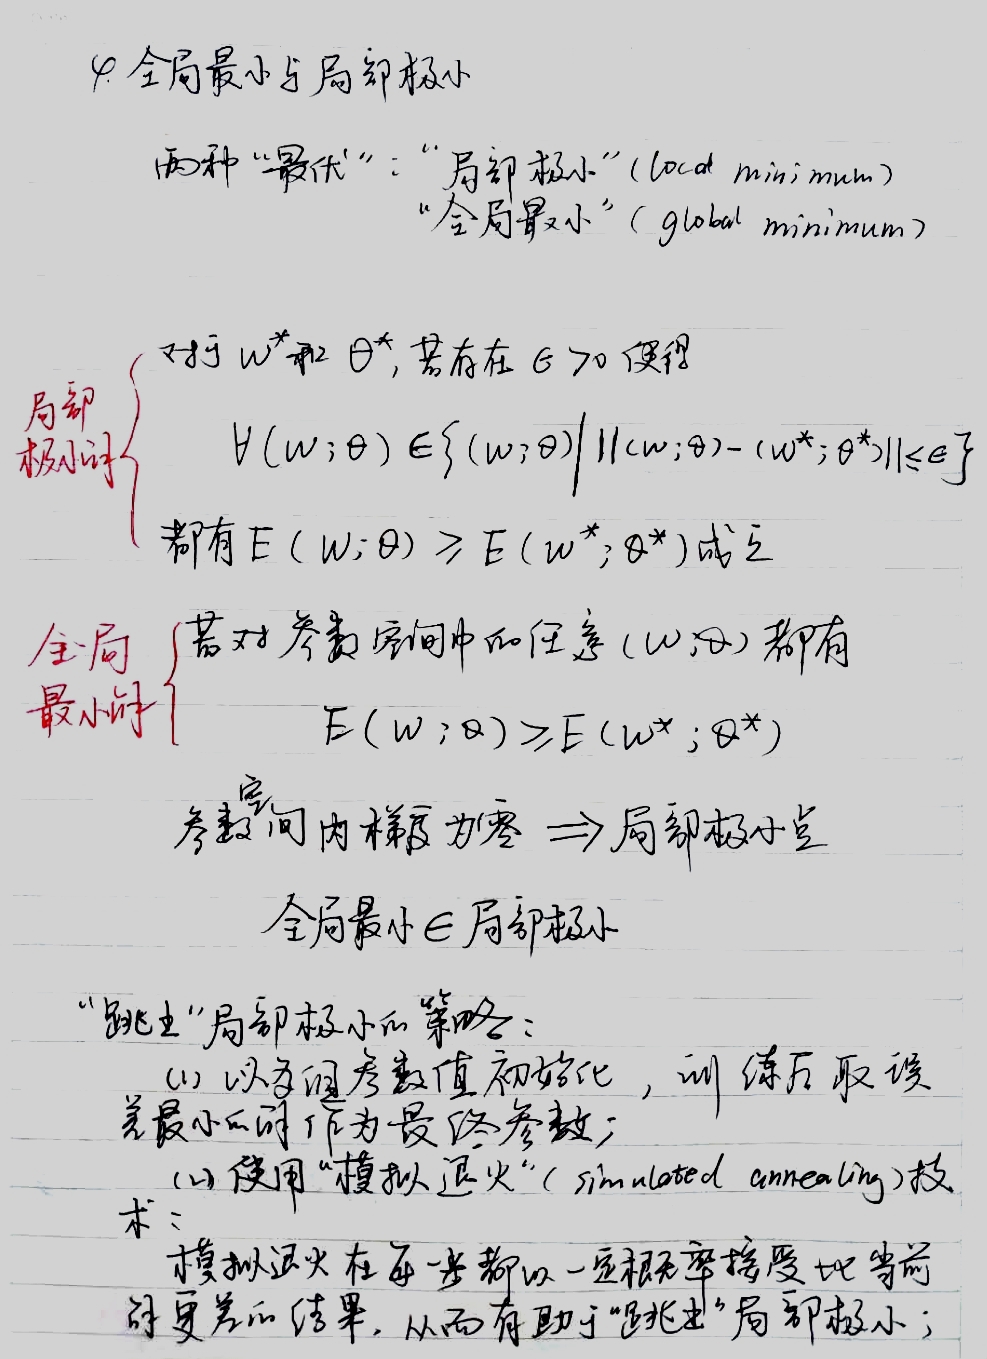 4. 全局最小与局部极小
两种“最优”：“局部极小”(local minimum)
“全局最小”(global minimum)
对于 w* 和 θ*, 若存在 ∈ >0 使得
局部
极小解
∀(w;θ) ∈{(w;θ)| ||(w;θ)-(w*;θ*)||≤∈}
都有 E(w;θ) ≥ E(w*;θ*)成立
全局
最小解
若对参数空间中的任意(w;θ)都有
E(w;θ)≥E(w*;θ*)
参数空间内梯度为零 ⇒局部极小点
全局最小∈局部极小
“跳出”局部极小的策略：
(1) 以多组参数值初始化，训练后取误
差最小的解作为最终参数；
(2) 使用“模拟退火”(simulated annealing)技
术：
模拟退火在每一步都以一定概率接受比当前
解更差的结果，从而有助于“跳出”局部极小；